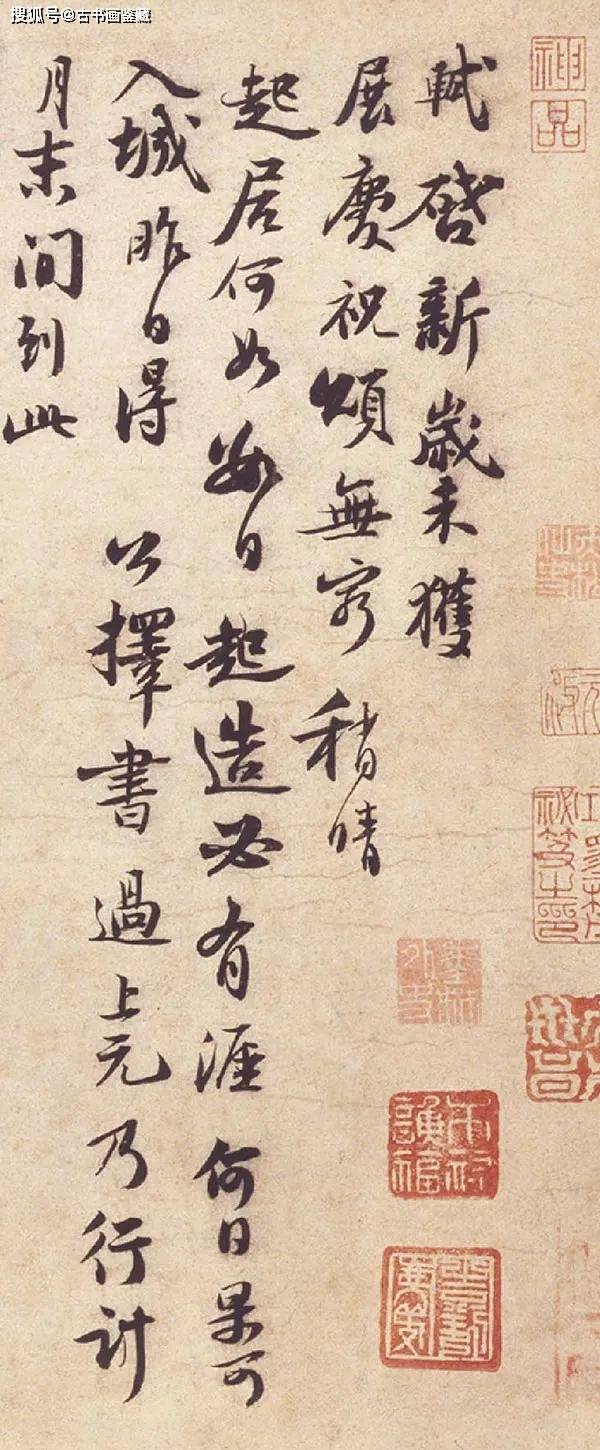 搜狐号@古书画鉴藏
神品
軾啓新歲未獲
展慶祝頌無窮稍晴
起居何如數日起造必有涯何日果可
入城昨日得公擇書過上元乃行計
月末間到此